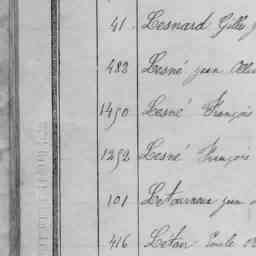 41 Lesnard Gilles
488 Lesné jean
1490 Lesné François
1292 Lesné François
101 Letourneux jean
416 Létan Emile